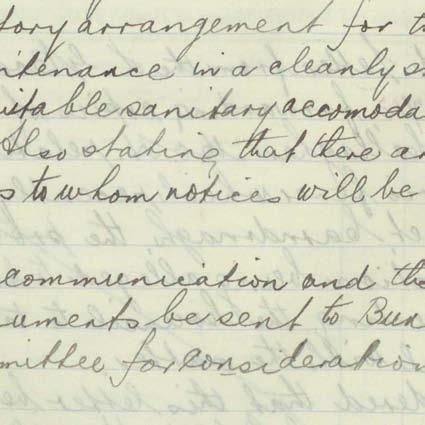 tory arrangement for t
ntenance in a cleanly s
uitable sanitary accomoda
Also stating that there ar
s to whom notices will be
communication and the
uments be sent to Bun
mittee for consideration